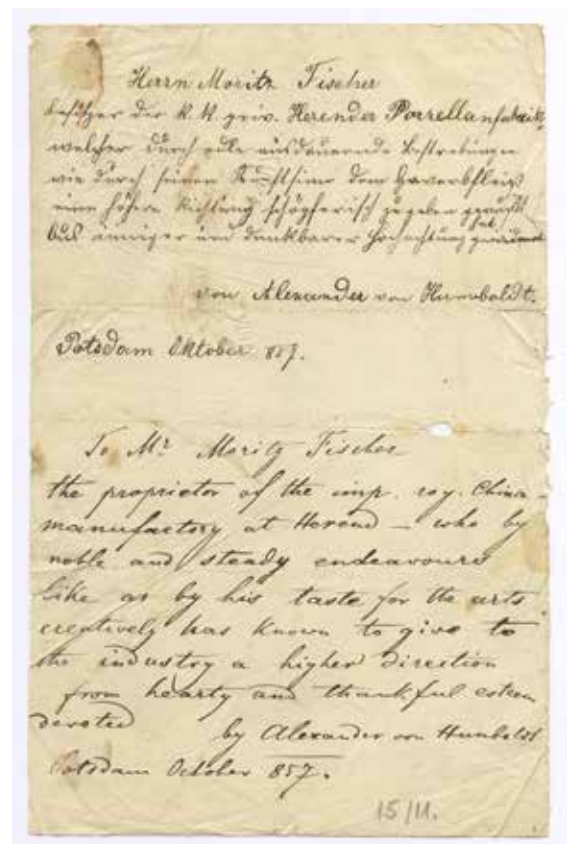 Herrn Moritz Fischer
Besitzer der K. K. priv. Herender Porzellanfabrik,
welcher durch edle ausdauernde Bestrebungen
wie durch seinen Kunstsinn dem Gewerbfleiß
eine höhere Richtung schöpferisch zu geben gewußt
hat
Aus inniger und dankbarer Hochachtung
von Alexander von Humboldt.
Potsdam Oktober 857.
To Mr Moritz Fischer
the proprietor of the imp. roy. China-
manufactory at Herend – who by
noble and steady endeavours
like as by his taste for the arts
creatively has known to give to
the industry a higher direction
from hearty and thankful esteem
devoted by Alexander von Humboldt
Potsdam October 857.
15/11.